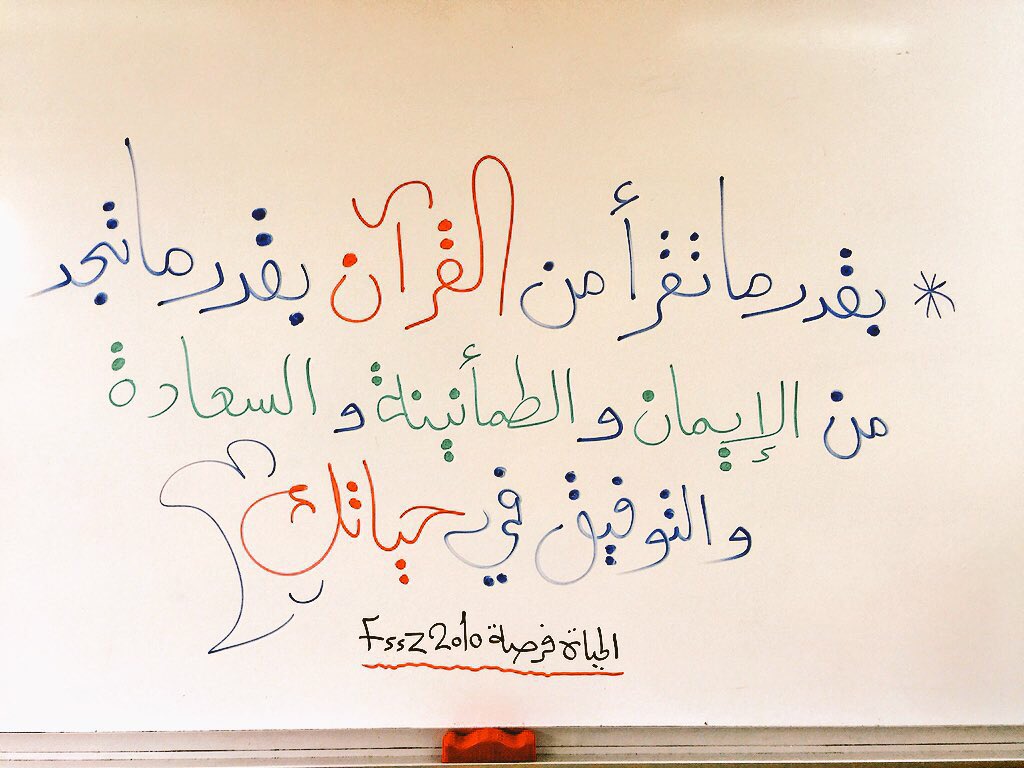 * بقدر ما تقرأ من القرآن بقدر ما تجد
من الإيمان و الطمأنينة و السعادة
و التوفيق في حياتك
الحياة فرصة Fssz2010